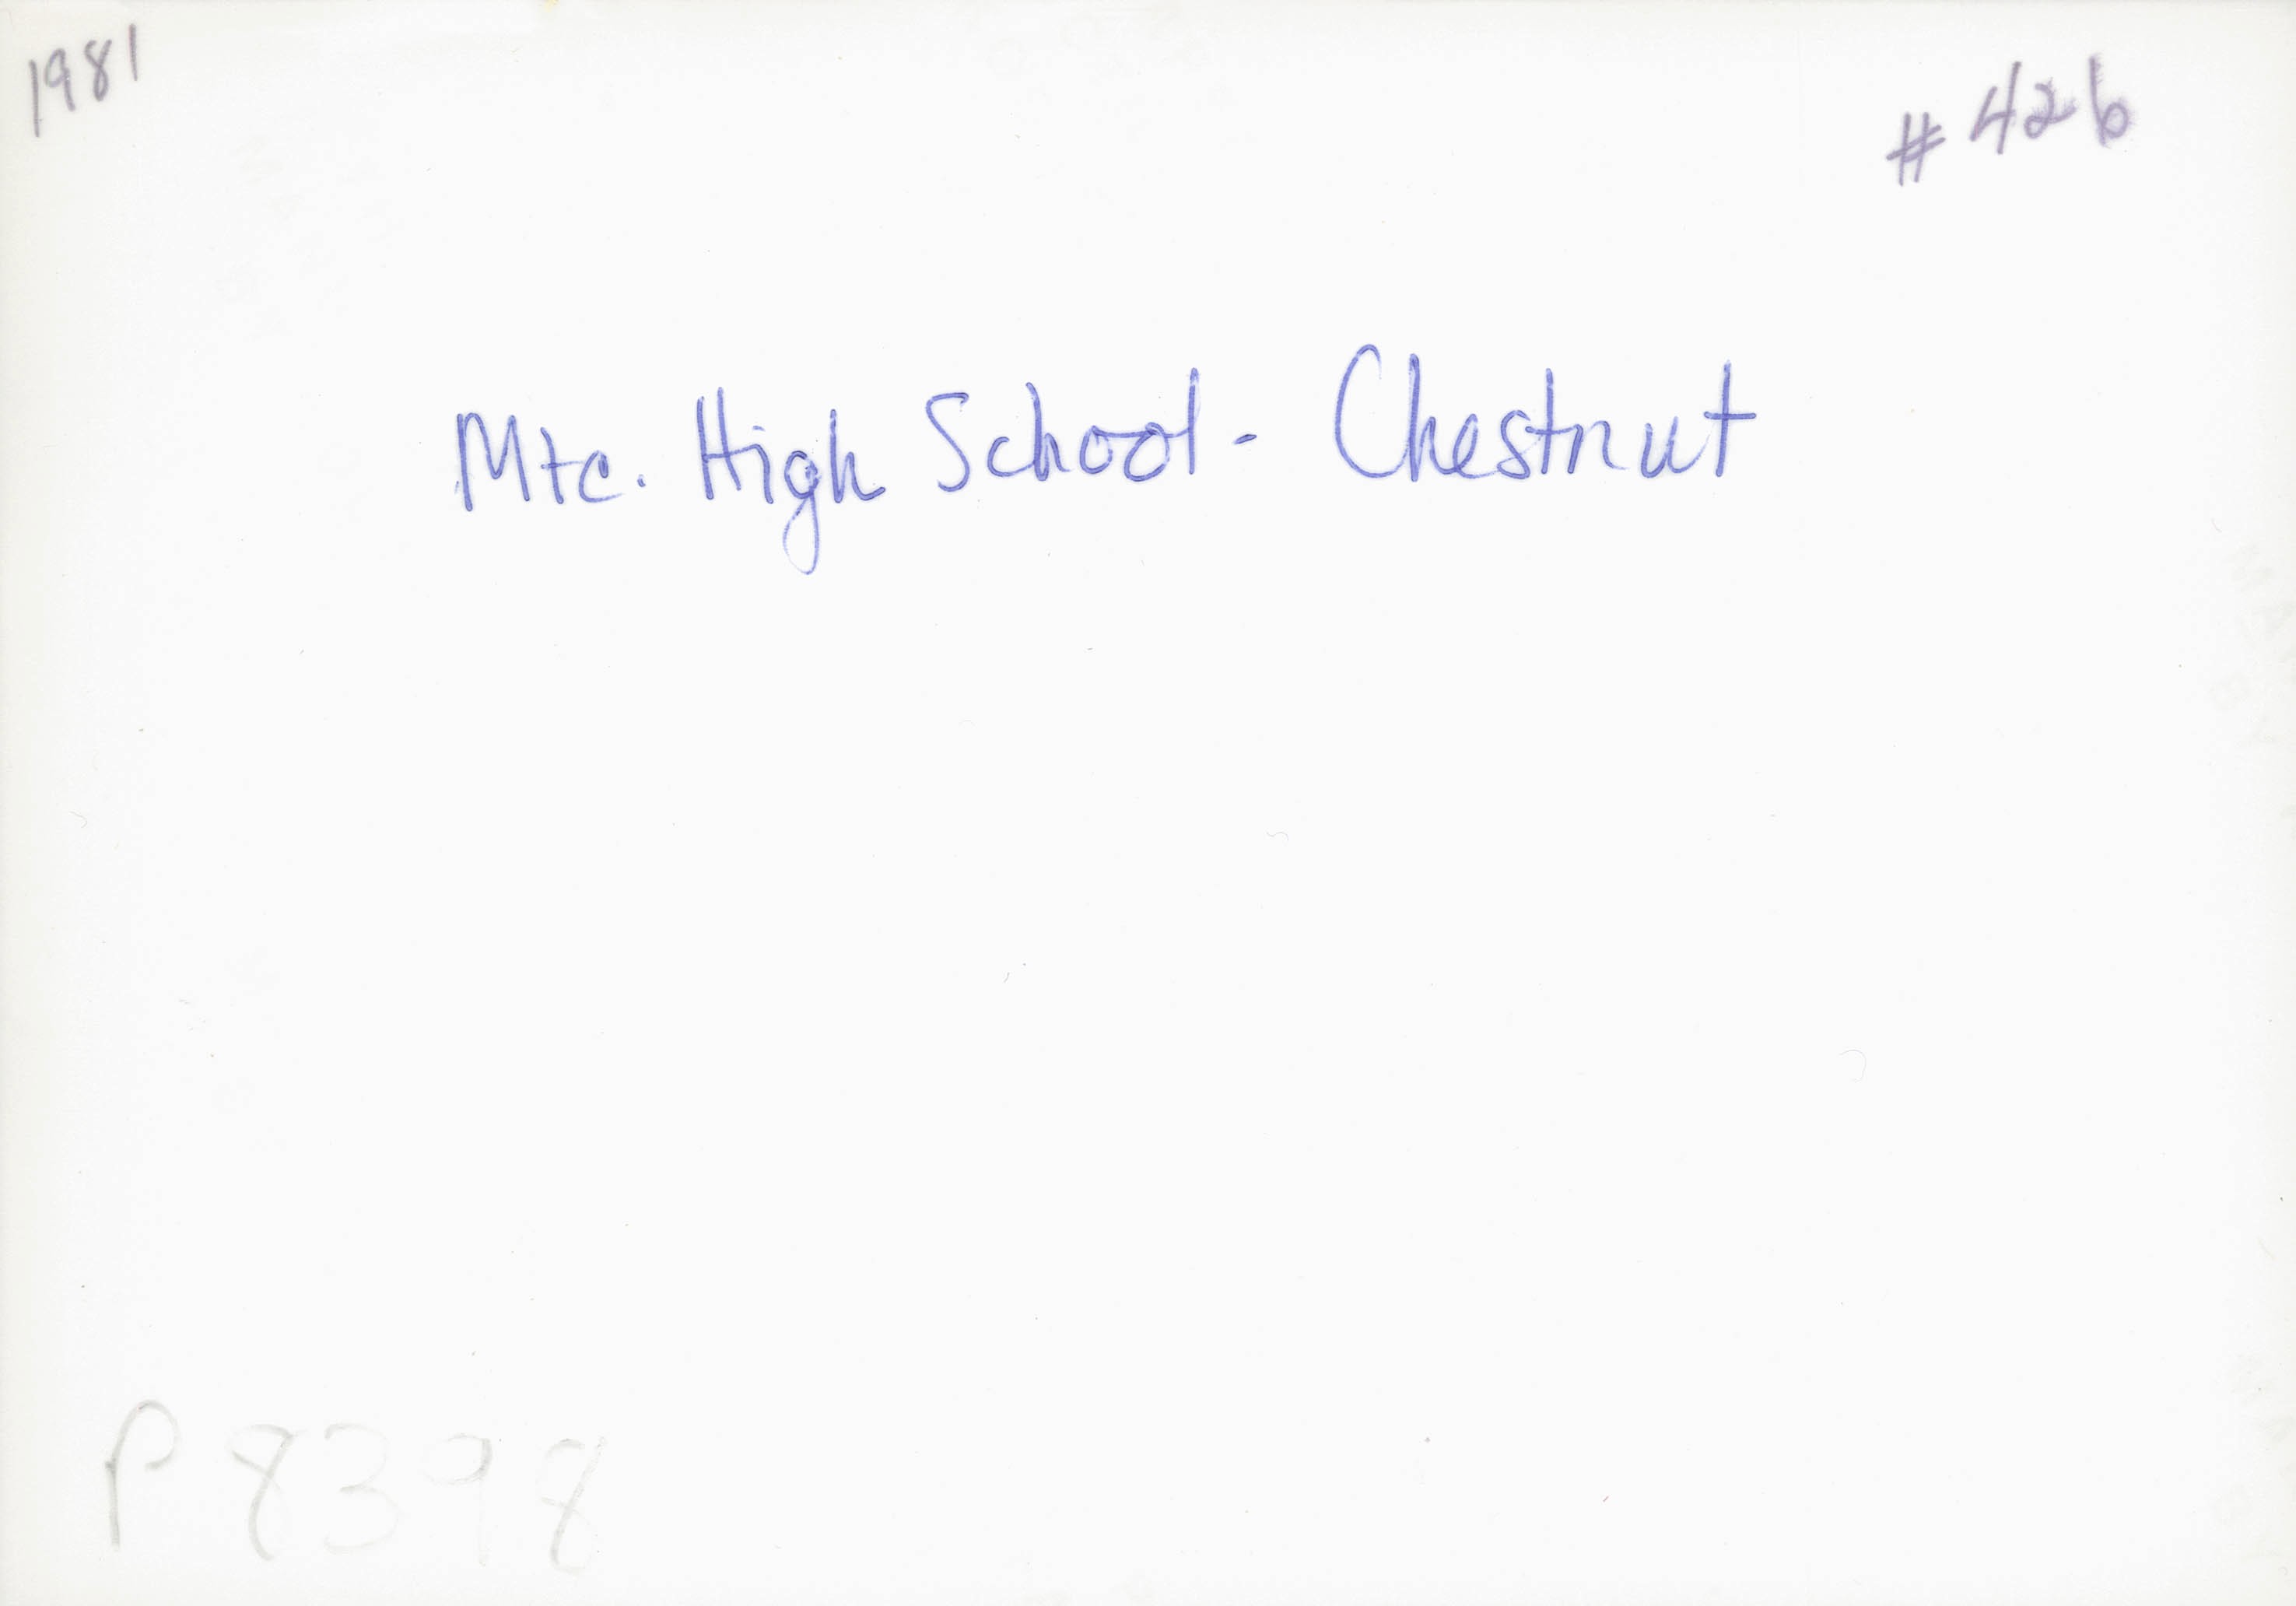 1981
# 426
Mtc. High School - Chestnut
P8398